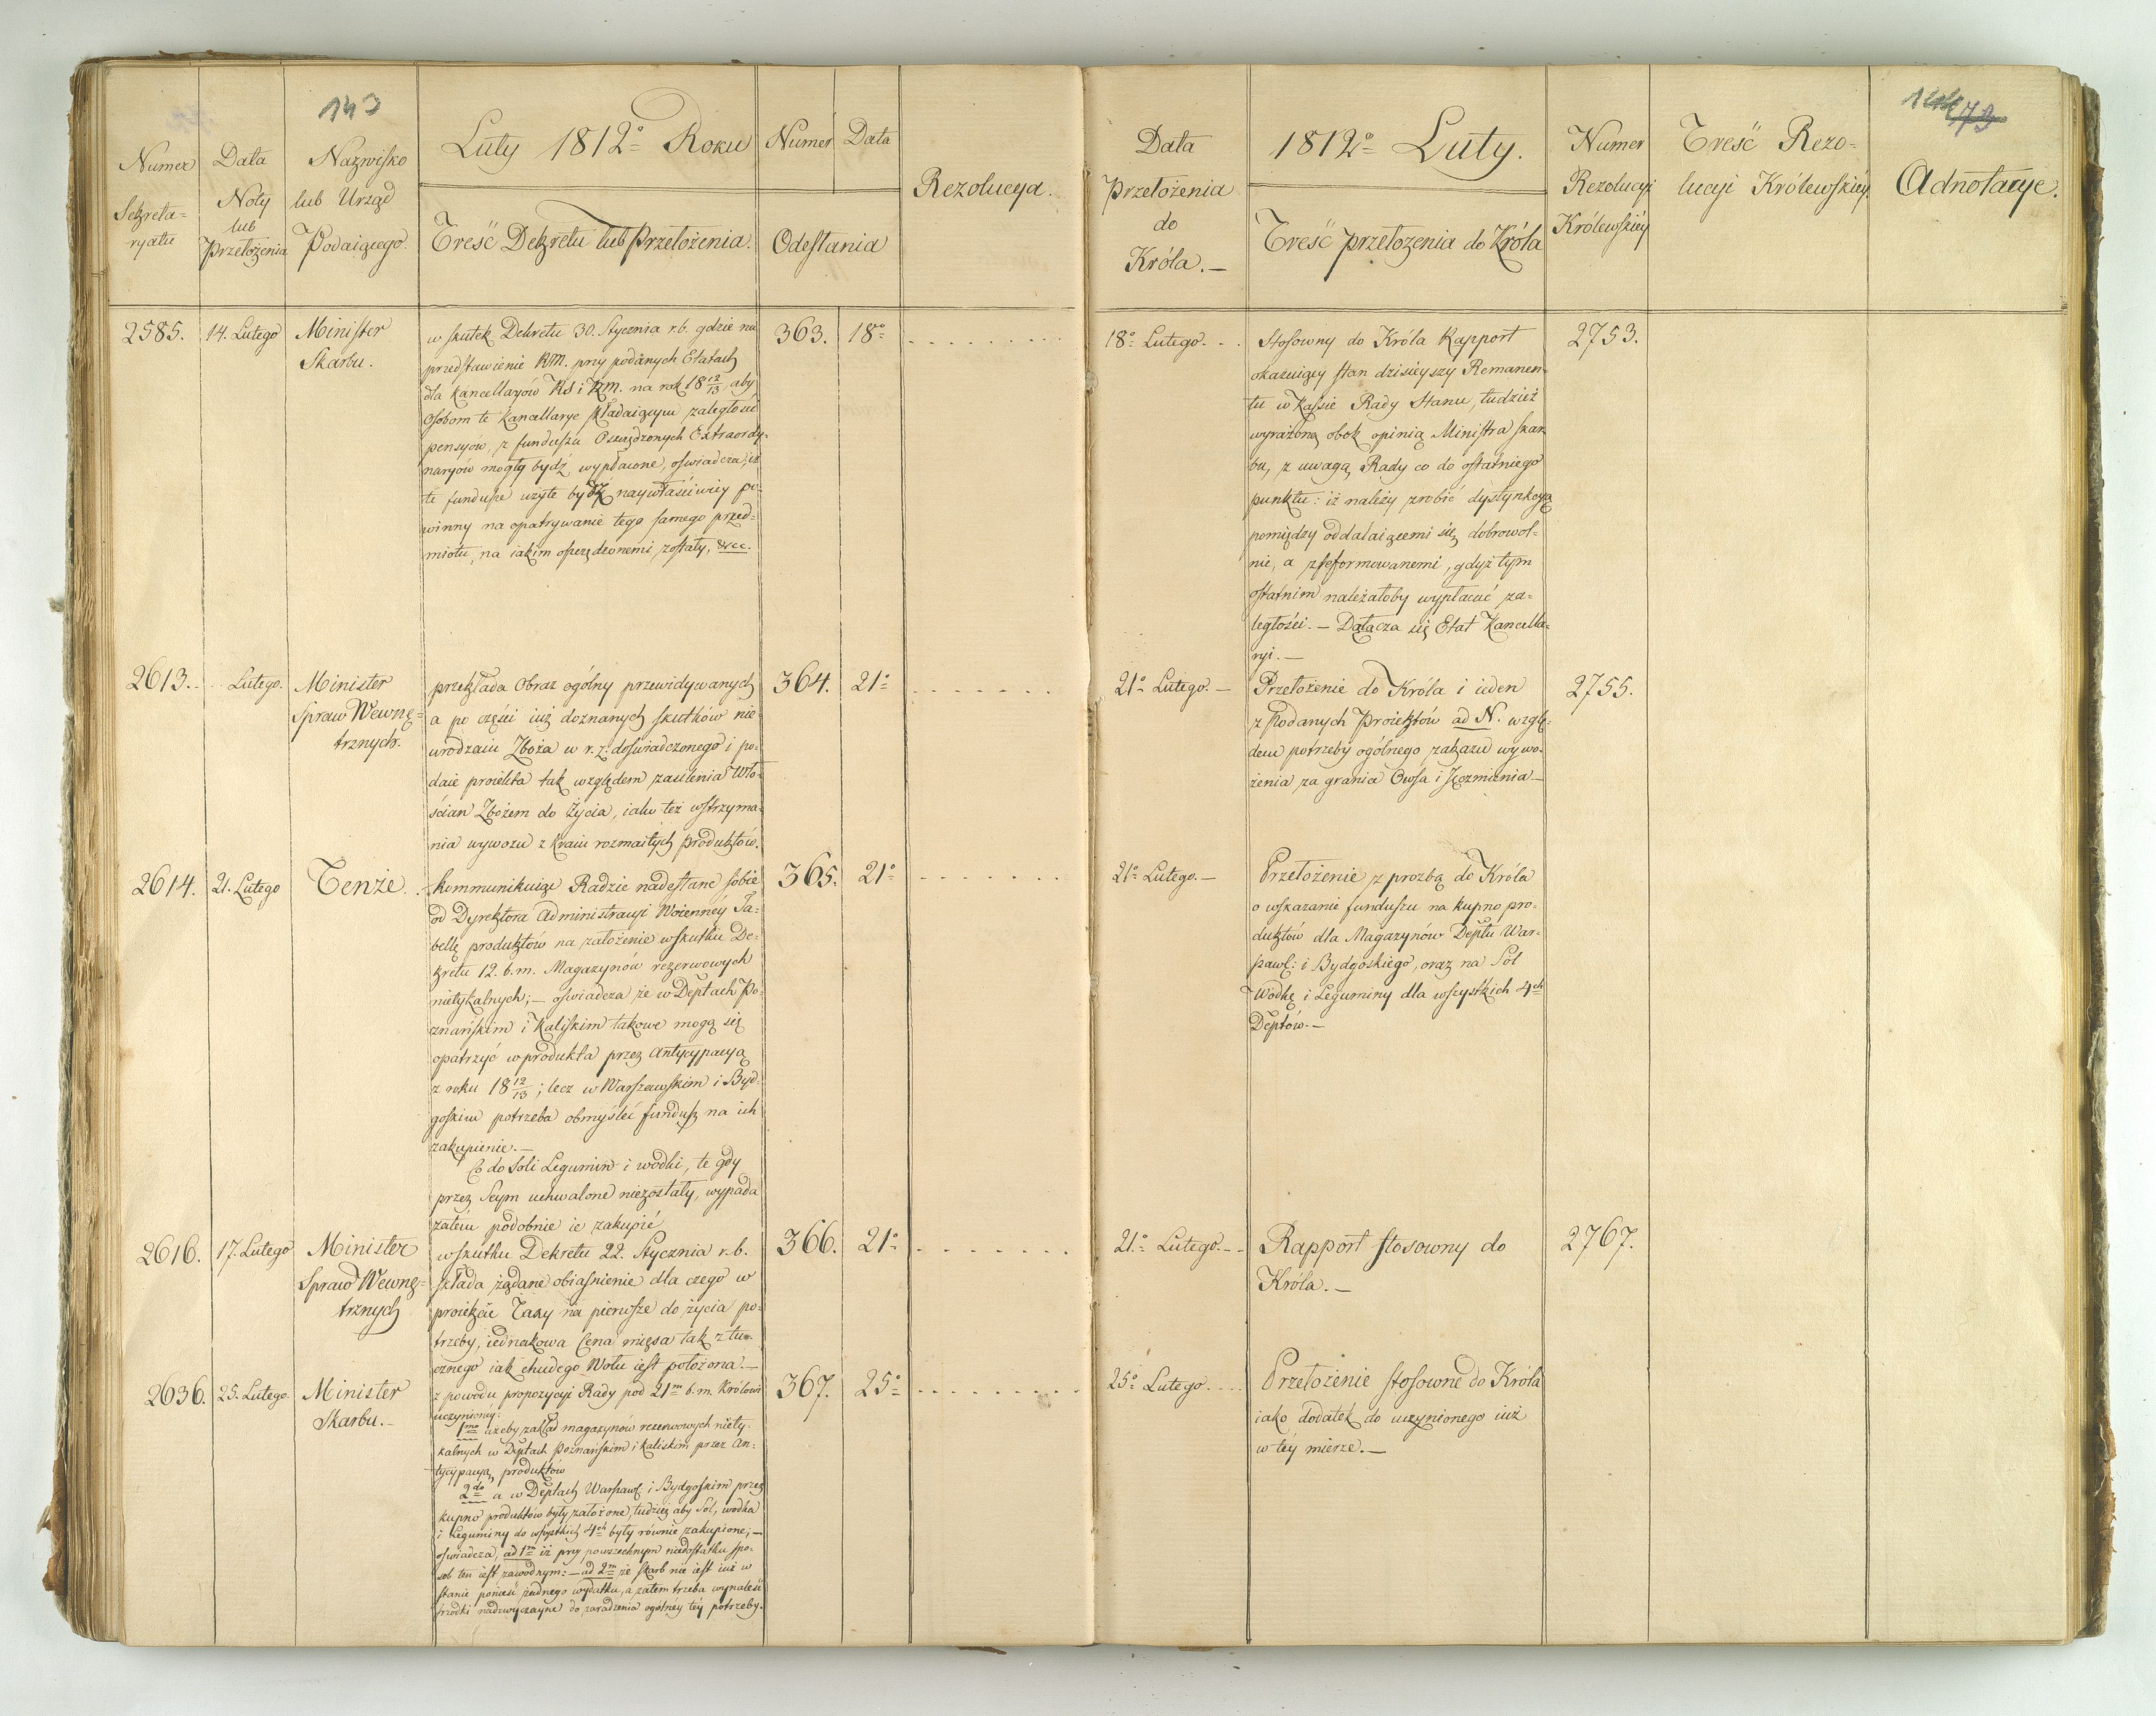 143
Numer
Sekreta=
ryatu
Data
Noty
lub
Przełożenia
Nazwisko
lub Urząd
Podaiącego.
Luty 1812º Roku
Treść Dekretu lub Przełożenia.
Numer Data
Odesłania
Rezolucya.
2585. 14. Lutego Minister
Skarbu.
w skutek Dekretu 30. Stycznia r.b. gdzie na
przedstawienie RM. przy podanych Etatach
dla Kancellaryów RS i RM. na rok 18 12/13, aby
Osobom te Kancellarye składaiącym zaległości
pensyów, z funduszu Oszczędzonych Extraordy=
naryów mogły bydź wypłacone, oświadcza, iż
te fundusze użyte bydź naywłaściwiey po=
winny na opatrywanie tego samego przed=
miotu, na iakim oszczędzonemi zostały, &cc.
363. 18º
2613. Lutego. Minister
Spraw Wewnę=
trznych.
przekłada Obraz ogólny przewidywanych
a po części iuż doznanych skutków nie=
urodzaiu Zboża w r. z. doświadczonego i po=
daie proiekta tak względem zasilenia Wło=
ścian Zbożem do życia, iako też wstrzyma=
nia wywozu z kraiu rozmaitych Produktów.
364. 21º
2614. 21. Lutego Tenże.
kommunikuiąc Radzie nadesłane sobie
od Dyrektora Administracyi Woienney Ta=
bellę produktów na założenie wskutku De=
kretu 12. b.m. Magazynów rezerwowych
nietykalnych; — oświadcza że w Deptach Po=
znańskim i Kaliskim takowe mogą się
opatrzyć w produkta przez Antycypacyą
z roku 18 12/13; lecz w Warszawskim i Byd=
goskim potrzeba obmyśleć fundusz na ich
zakupienie. —
Co do Soli Legumin i wodki, te gdy
przez Seym uchwalone niezostały, wypada
zatem podobnie ie zakupić
365. 21º
2616. 17. Lutego Minister
Spraw Wewnę=
trznych
wskutku Dekretu 22. Stycznia r.b.
składa żądane obiaśnienie dla czego w
proiekcie Taxy na pierwsze do życia po=
trzeby, iednakowa Cena mięsa tak z tu=
cznego iak chudego Wołu iest położona. —
366. 21º
2636. 25. Lutego. Minister
Skarbu. —
z powodu propozycyi Rady pod 21m b.m. Królowi
uczynioney:
1mo ażeby zakład magazynów rezerwowych niety=
kalnych w Deptach Poznańskim i Kaliskim przez An=
tycypacyą produktów
2do a w Deptach Warszaws: i Bydgoskim przez
kupno produktów były założone, tudzież aby Sól, wodka
i Leguminy do wszystkich 4ch były równie zakupione; —
oświadcza, ad 1m iż przy powszechnym niedostatku spo=
sób ten iest zawodnym: — ad 2m że Skarb nie iest iuż w
stanie ponieść żadnego wydatku, a zatem trzeba wynaleść
środki nadzwyczayne do zaradzenia ogólney tey potrzeby.
367. 25º
73
Data
Przełożenia
do
Króla. —
1812º Luty.
Treść przełożenia do Króla
Numer
Rezolucyi
Królewskiey
Treść Rezo=
lucyi Królewskiey.
Adnotacye.
18º Lutego.
Stosowny do Króla Rapport
okazuiący stan dzisieyszy Remanen=
tu w Kassie Rady Stanu, tudzież
wyrażoną obok opinią Ministra Skar
bu, z uwagą Rady co do ostatniego
punktu: iż należy zrobić dystynkcyą
pomiędzy oddalaiącemi się dobrowol=
nie, a zreformowanemi, gdyż tym
ostatnim należałoby wypłacić za=
ległości. — Dołącza się Etat Kancella=
ryi. —
2753.
21º Lutego. —
Przełożenie do Króla i ieden
z Podanych Proiektów ad N. wzglę=
dem potrzeby ogólnego zakazu wywo=
żenia za granicę Owsa i Jęczmienia —
2755.
21º Lutego. —
Przełożenie z prozbą do Króla
o wskazanie funduszu na kupno pro=
duktów dla Magazynów Deptu War=
szaws: i Bydgoskiego, oraz na Sól
Wodkę i Leguminy dla wszystkich 4ch
Deptów. —
21º Lutego. —
Rapport stosowny do
Króla. —
2767.
25º Lutego.
Przełożenie stosowne do Króla
iako dodatek do uczynionego iuż
w tey mierze. —